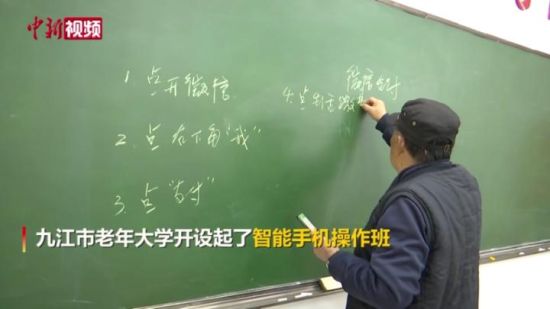 中新视频
微信支付
1. 点开微信
4. 点
2. 点右下角“我”
3. 点“支付”
九江市老年大学开设起了智能手机操作班